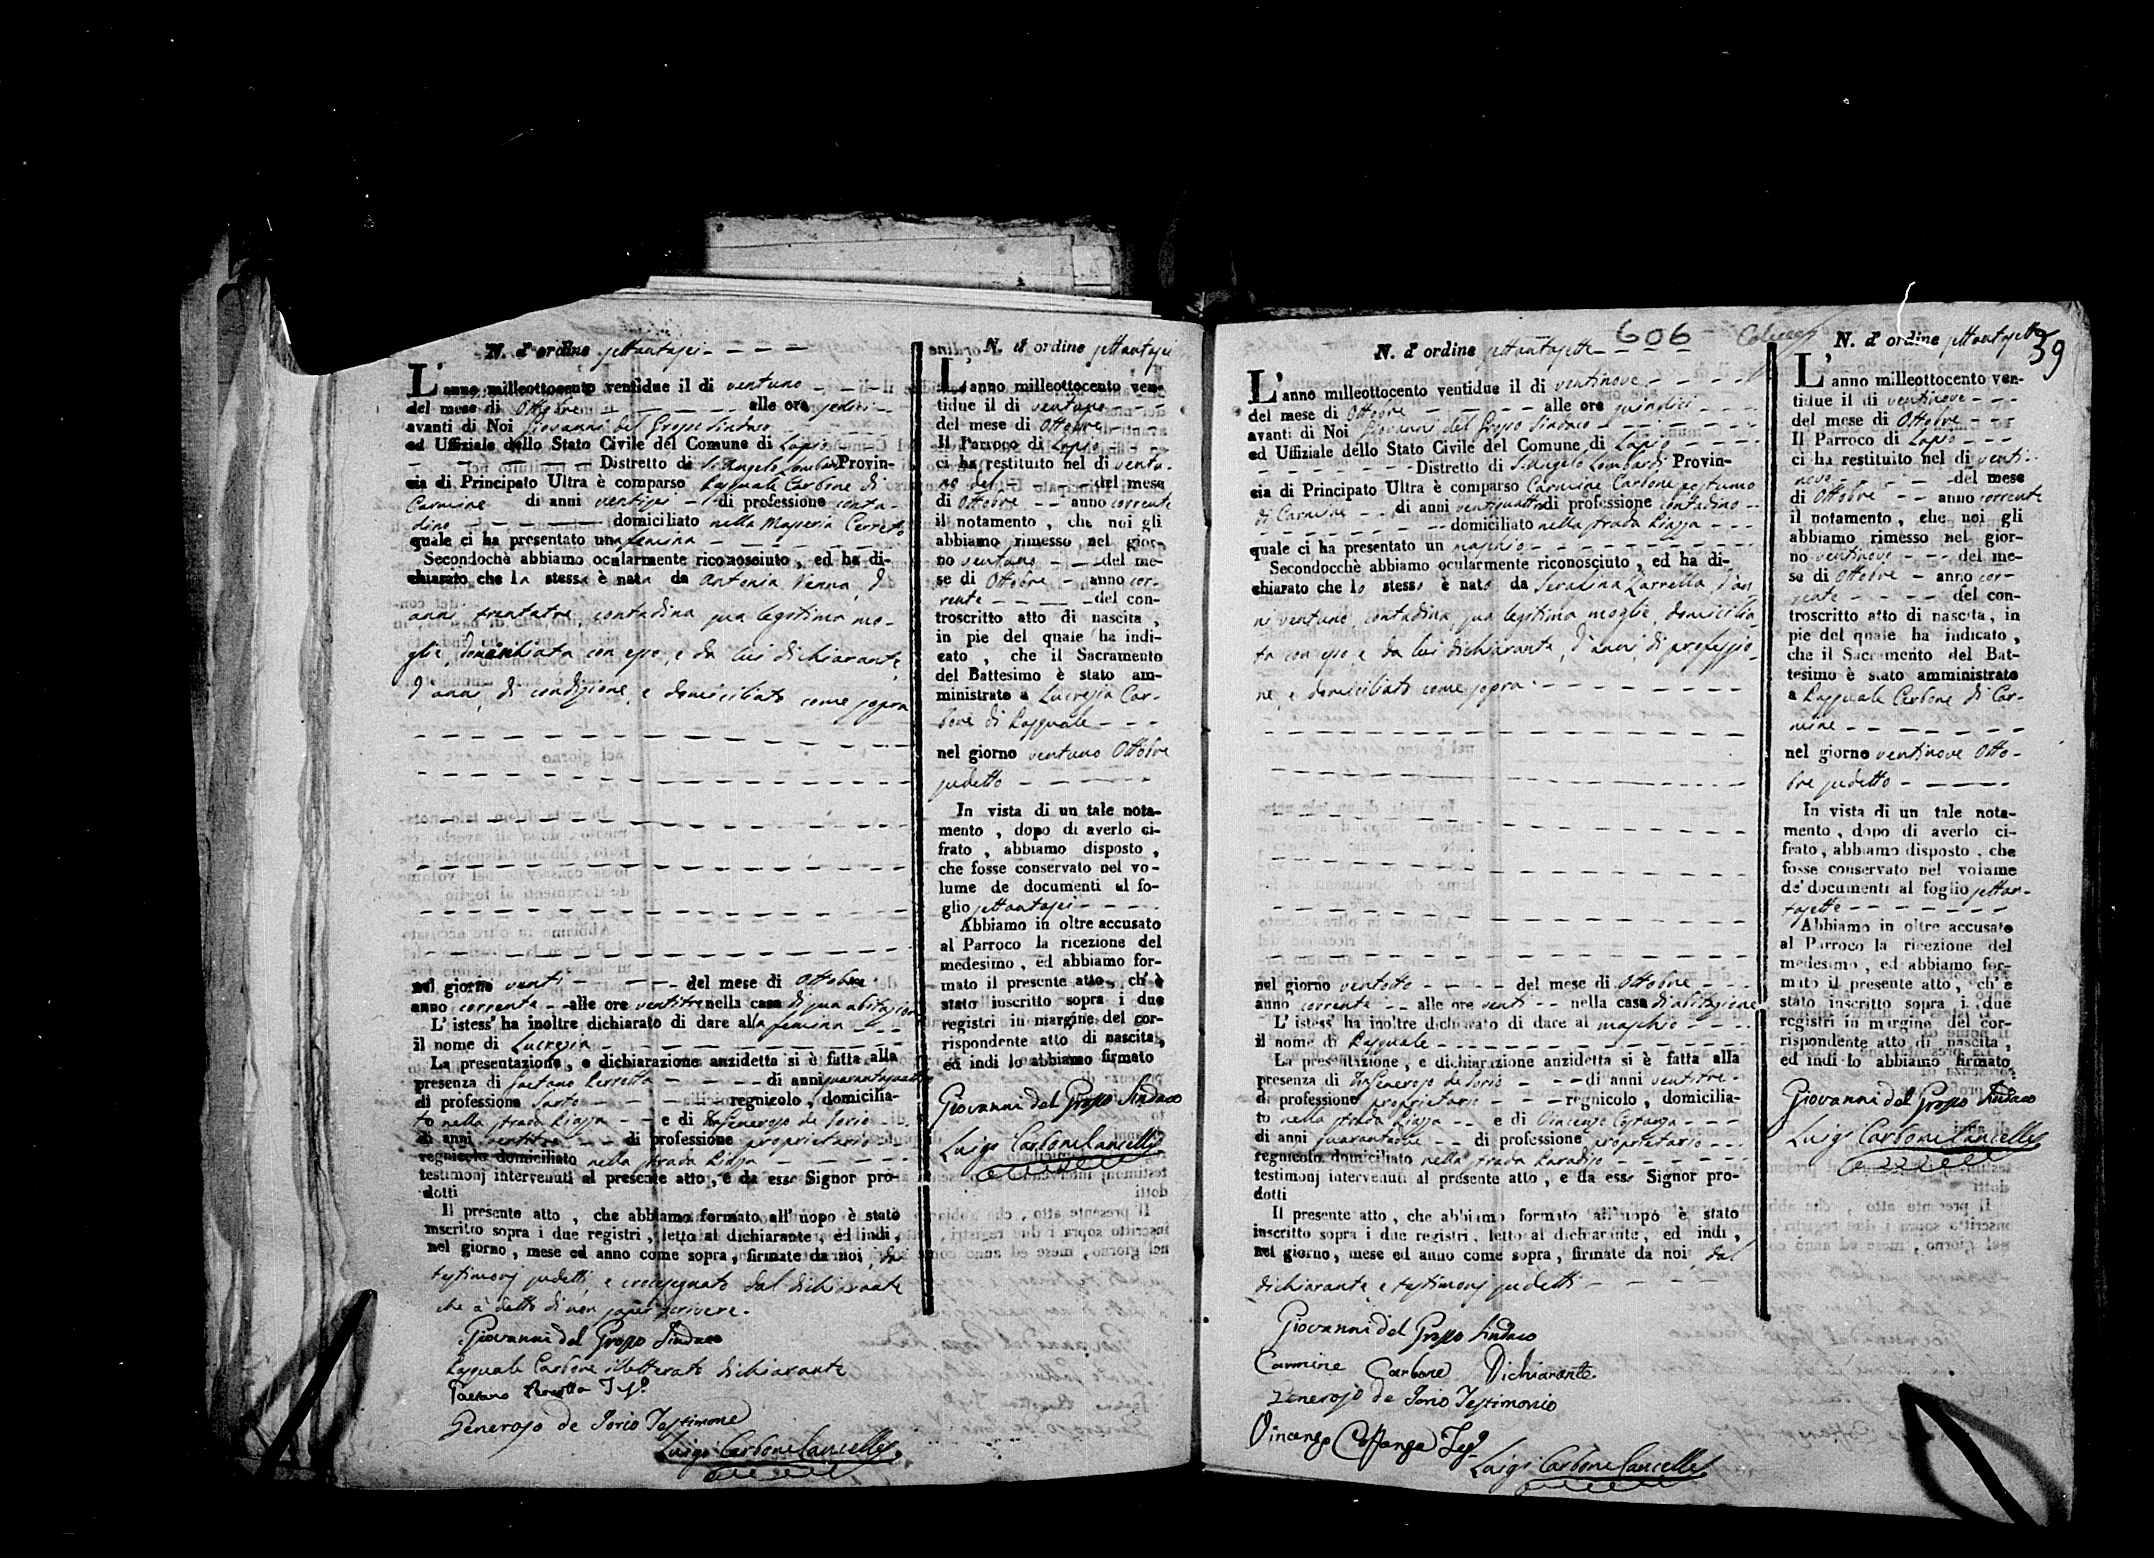 N. d' ordine settantasei
L' anno milleottocento ventidue il di ventuno
del mese di Ottobre alle ore sedici
avanti di Noi Giovanni del Grosso Sindaco
ed Uffiziale dello Stato Civile del Comune di Lapio
Distretto di S. Angelo Lombardi Provin-
cia di Principato Ultra è comparso Pasquale Carbone di
Carmine di anni ventisei di professione conta-
dino domiciliato nella Masseria Cerreto
quale ci ha presentato una femina
Secondochè abbiamo ocularmente riconosciuto, ed ha di-
chiarato che la stessa è nata da Antonia Venna, d'
anni trentatre, contadina sua legitima mo-
glie, domiciliata con esso, e da lui dichiarante,
d'anni, di condizione, e domiciliato come sopra
nel giorno venti del mese di Ottobre
anno corrente alle ore ventitre nella casa di sua abitazione
L' istess' ha inoltre dichiarato di dare alla femina
il nome di Lucrezia
La presentazione, e dichiarazione anzidetta si è fatta alla
presenza di Gaetano Perrotta di anni quarantaquattro
di professione Sarto regnicolo, domicilia-
to nella strada Piazza e di D. Generoso de Iorio
di anni ventitre di professione proprietario
regnicolo domiciliato nella strada Piazza
testimonj intervenuti al presente atto, e da esso Signor pro-
dotti
Il presente atto, che abbiamo formato all' uopo è stato
inscritto sopra i due registri, letto al dichiarante, ed indi,
nel giorno, mese ed anno come sopra, firmate da noi, da
testimonj sudetti, e crocesegnato dal dichiarante
che à detto di non saper scrivere.
Giovanni del Grosso Sindaco
Pasquale Carbone illetterato dichiarante
Gaetano Perrotta Tes.o
Generoso de Iorio Testimone
Luigi Carbone Cancell.e
N. d' ordine settantasei
L' anno milleottocento ven-
tidue il di ventuno
del mese di Ottobre
Il Parroco di Lapio
ci ha restituito nel di ventu-
no del del mese
di Ottobre anno corrente
il notamento, che noi gli
abbiamo rimesso nel gior-
no ventuno del me-
se di Ottobre anno cor-
rente del con-
troscritto atto di nascita,
in pie del quale ha indi-
cato, che il Sacramento
del Battesimo è stato am-
ministrato a Lucrezia Car-
bone di Pasquale
nel giorno ventuno Ottobre
sudetto
In vista di un tale nota-
mento, dopo di averlo ci-
frato, abbiamo disposto,
che fosse conservato nel vo-
lume de documenti al fo-
glio settantasei
Abbiamo in oltre accusato
al Parroco la ricezione del
medesimo, ed abbiamo for-
mato il presente atto, ch' è
stato inscritto sopra i due
registri in margine del cor-
rispondente atto di nascita,
ed indi lo abbiamo firmato
Giovanni del Grosso Sindaco
Luigi Carbone Cancell.e
606
39
N. d' ordine settantasette
L' anno milleottocento ventidue il di ventinove
del mese di Ottobre alle ore quindici
avanti di Noi Giovanni del Grosso Sindaco
ed Uffiziale dello Stato Civile del Comune di Lapio
Distretto di S. Angelo Lombardi Provin-
cia di Principato Ultra è comparso Carmine Carbone postumo
di Carmine di anni ventiquattro di professione contadino
domiciliato nella strada Piazza
quale ci ha presentato un maschio
Secondocchè abbiamo ocularmente riconosciuto, ed ha di-
chiarato che lo stesso è nato da Serafina Zarrella d'an
ni ventuno, contadina, sua legitima moglie, domicilia-
ta con esso, e da lui dichiarante, d'anni, di professio-
ne, e domiciliato come sopra
nel giorno ventotto del mese di Ottobre
anno corrente alle ore venti nella casa di abitazione
L' istess' ha inoltre dichiarato di dare al maschio
il nome di Pasquale
La presentazione, e dichiarazione anzidetta si è fatta alla
presenza di D. Generoso de Iorio di anni ventitre
di professione proprietario regnicolo, domicilia-
to nella strada Piazza e di Vincenzo Costanza
di anni quarantadue di professione proprietario
regnicolo domiciliato nella strada Paradiso
testimonj intervenuti al presente atto, e da esso Signor pro-
dotti
Il presente atto, che abbiamo formato all' uopo è stato
inscritto sopra i due registri, letto al dichiarante, ed indi,
nel giorno, mese ed anno come sopra, firmate da noi, dal
dichiarante, e testimonj sudetti
Giovanni del Grosso Sindaco
Carmine Carbone Dichiarante
Generoso de Iorio Testimonio
Vincenzo Costanza Teg.o
Luigi Carbone Cancell.e
N. d' ordine settantasette
L' anno milleottocento ven-
tidue il di ventinove
del mese di Ottobre
Il Parroco di Lapio
ci ha restituito nel di venti-
nove del mese
di Ottobre anno corrente
il notamento, che noi gli
abbiamo rimesso nel gior-
no ventinove del me-
se di Ottobre anno cor-
rente del con-
troscritto atto di nascita, in
pie del quale ha indicato,
che il Sacramento del Bat-
tesimo è stato amministrato
a Pasquale Carbone di Car-
mine
nel giorno ventinove Otto-
bre sudetto
In vista di un tale nota-
mento, dopo di averlo ci-
frato, abbiamo disposto, che
fosse conservato nel volume
de' documenti al foglio settan-
tasette
Abbiamo in oltre accusato
al Parroco la ricezione del
medesimo, ed abbiamo for-
mato il presente atto, ch' è
stato inscritto sopra i due
registri in margine del cor-
rispondente atto di nascita,
ed indi lo abbiamo firmato
Giovanni del Grosso Sindaco
Luigi Carbone Cancell.e